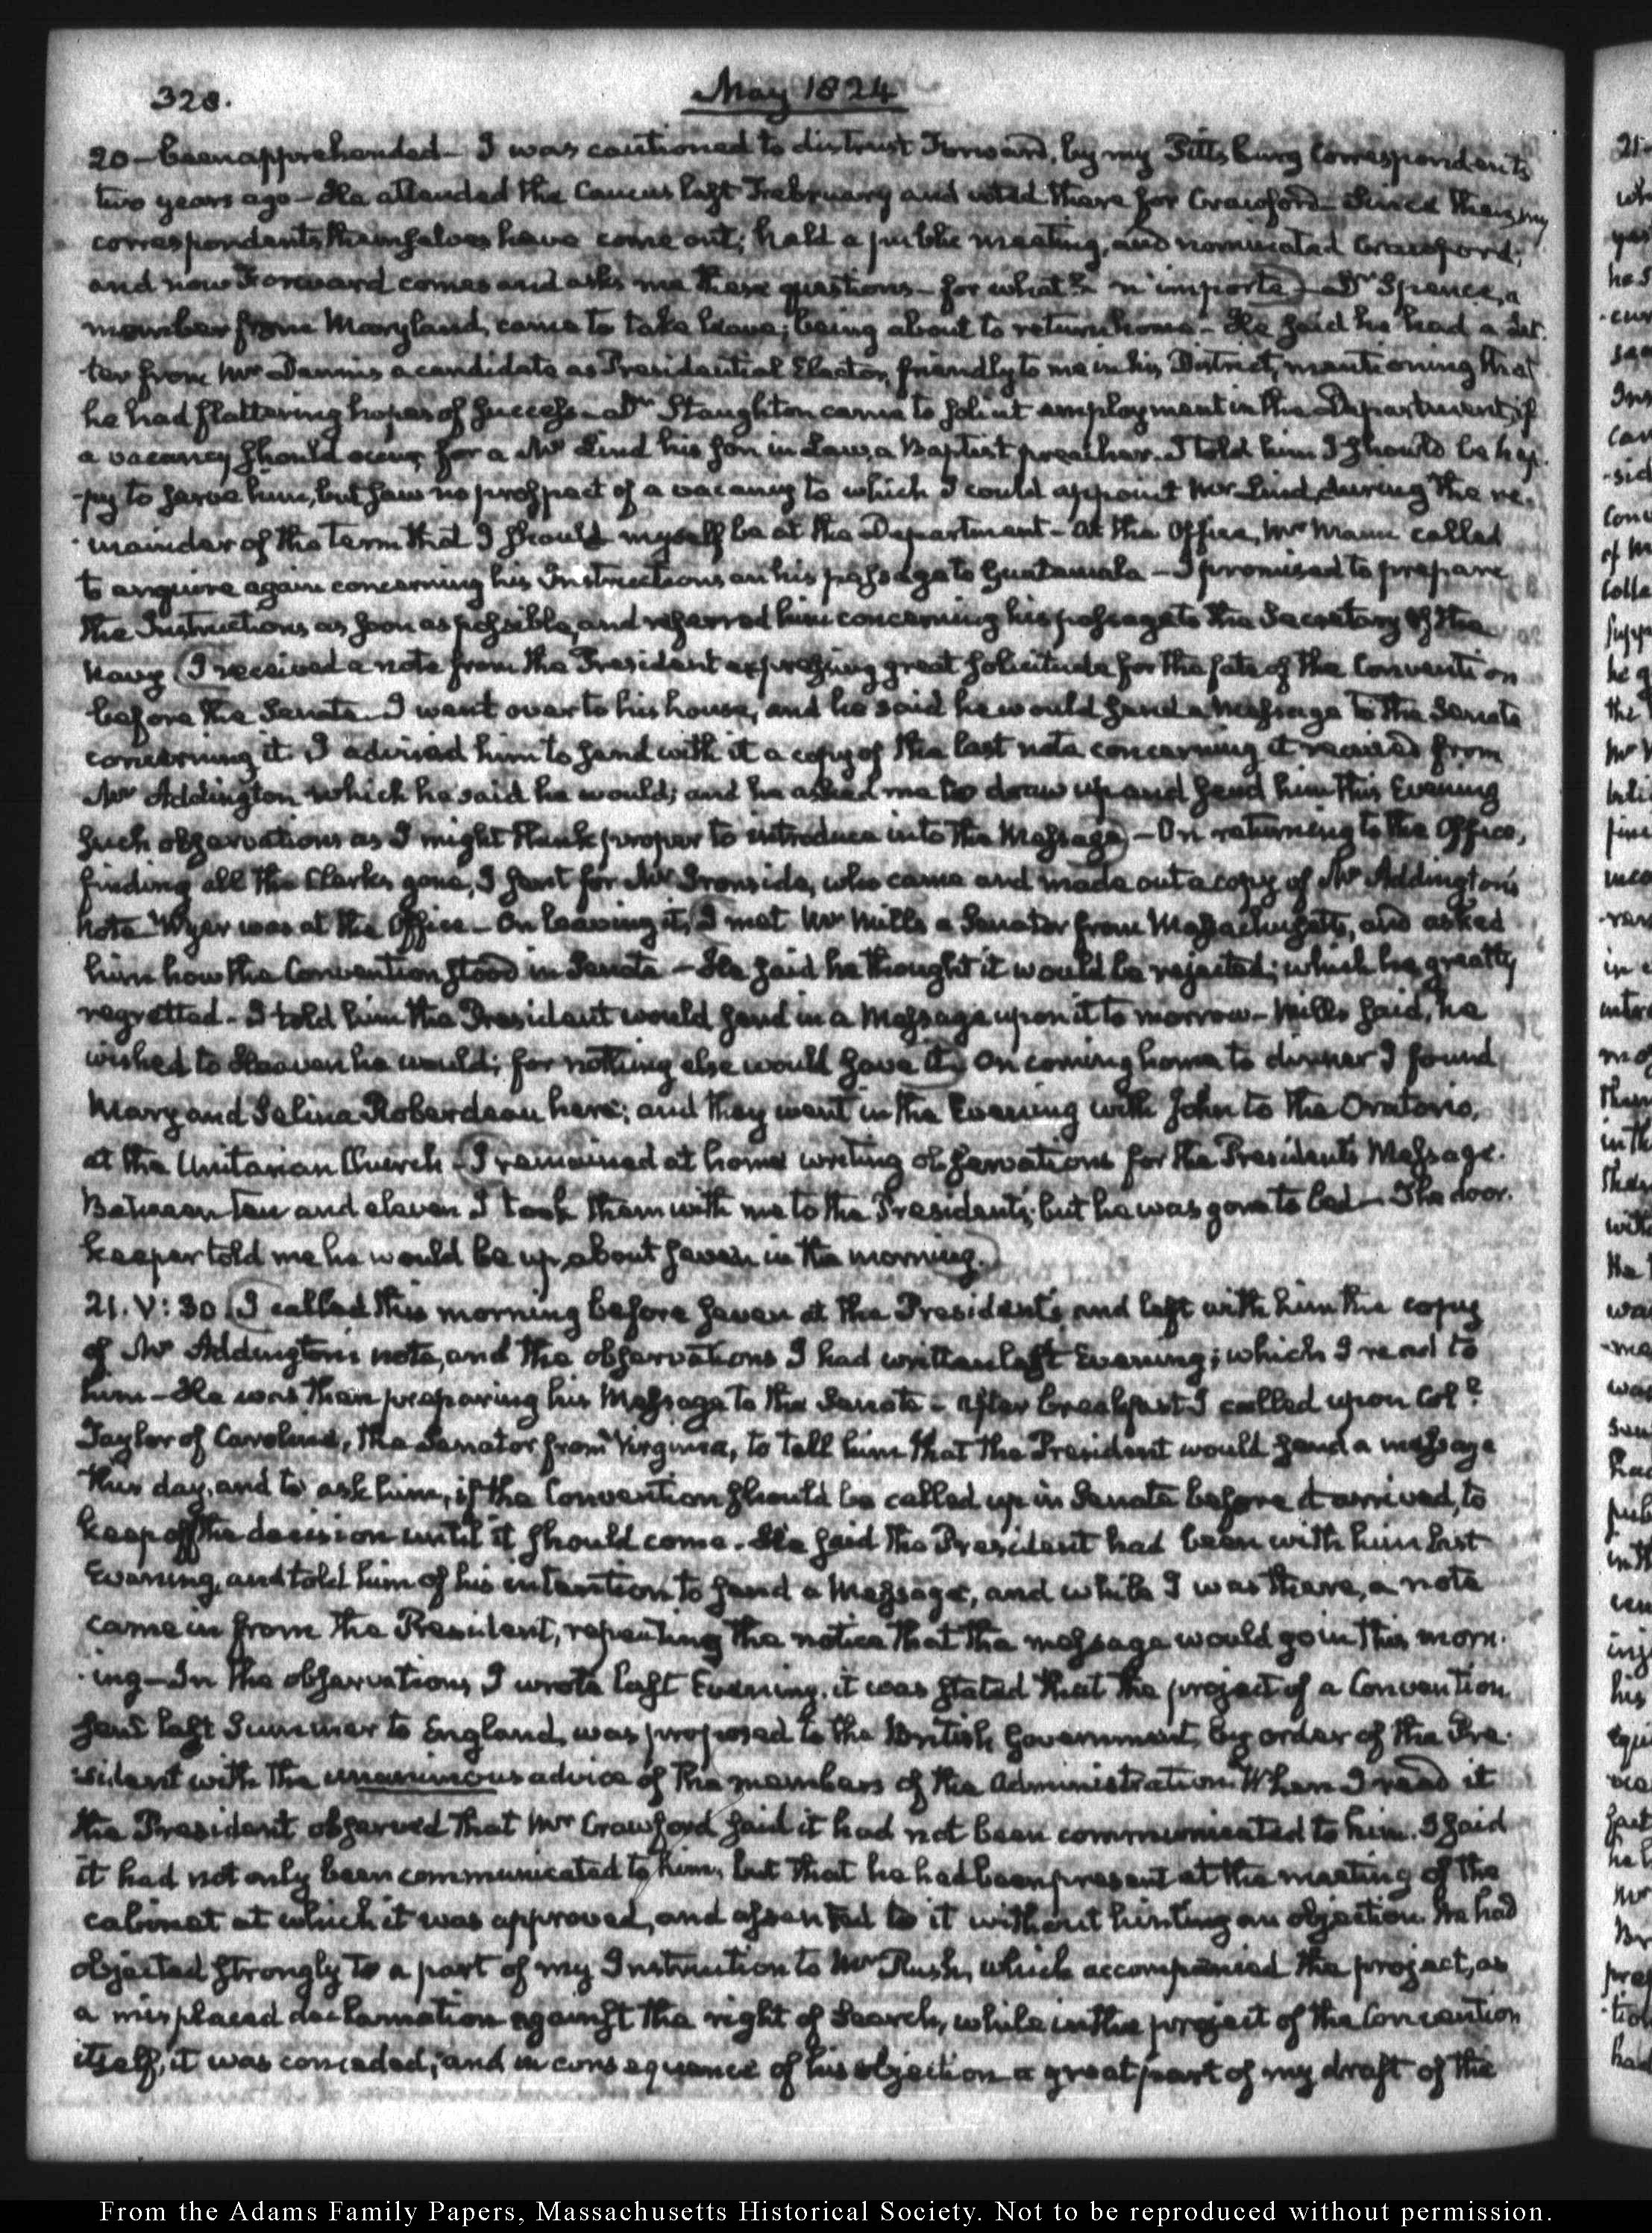 328.
May 1824
20 – been apprehended – I was cautioned to distrust Forward, by my Pittsburg Correspondents
two years ago – He attended the Caucus last February and voted there for Crawford – Since then, my
correspondents themselves have come out; held a public meeting, and nominated Crawford;
and now Forward comes and asks me these questions – for what? – n'importe – Dr Spence, a
member from Maryland, came to take leave; being about to return home – He said he had a Let-
ter from Mr Dennis a candidate as Presidential Elector, friendly to me in his District, mentioning that
he had flattering hopes of success – Dr Staughton came to solicit employment in the Department, if
a vacancy should occur, for a Mr Lind his son in Law, a Baptist preacher. I told him I should be hap-
-py to serve him, but saw no prospect of a vacancy to which I could appoint Mr Lind, during the re-
-mainder of the term that I should myself be at the Department – At the Office, Mr Mann called
to enquire again concerning his Instructions on his passage to Guatamala – I promised to prepare
the Instructions as soon as possible, and referred him concerning his passage to the Secretary of the
Navy (I received a note from the President expressing great solicitude for the fate of the Convention
before the Senate. I went over to his house, and he said he would send a Message to the Senate
concerning it. I advised him to send with it a copy of the last note concerning it received from
Mr Addington which he said he would; and he asked me to draw up and send him this Evening
such observations as I might think proper to introduce into the Message) – On returning to the Office,
finding all the Clerks gone, I sent for Mr Ironside, who came and made out a copy of Mr Addington's
note Wyer was at the Office – On leaving it, (I met Mr Mills a Senator from Massachusetts, and asked
him how the Convention stood in Senate – He said he thought it would be rejected; which he greatly
regretted – I told him the President would send in a Message upon it to morrow – Mills said, he
wished to Heaven he would; for nothing else would save it.) On coming home to dinner I found
Mary and Selina Roberdeau here; and they went in the Evening with John to the Oratorio,
at the Unitarian Church – (I remained at home writing observations for the President's Message.
Between ten and eleven I took them with me to the President's; but he was gone to bed – The door-
keeper told me he would be up, about seven in the morning.)
21. V: 30. (I called this morning before seven at the President's and left with him the copy
of Mr Addington's note, and the observations I had written last Evening; which I read to
him – He was then preparing his Message to the Senate – After breakfast I called upon Coll
Taylor of Caroline, the Senator from Virginia, to tell him that the President would send a message
this day, and to ask him, if the Convention should be called up in Senate before it arrived, to
keep off the decision until it should come. He said the President had been with him last
Evening, and told him of his intention to send a Message, and while I was there, a note
came in from the President, repeating the notice that the message would go in this morn-
-ing – In the observations I wrote last Evening, it was stated that the project of a Convention
sent last Summer to England, was proposed to the British Government, by order of the Pre-
sident with the unanimous advice of the members of the Administration. When I read it
the President observed that Mr Crawford said it had not been communicated to him. I said
it had not only been communicated to him, but that he had been present at the meeting of the
cabinet at which it was approved, and assented to it without hinting an objection. He had
objected strongly to a part of my Instruction to Mr Rush, which accompanied the project, as
a misplaced declamation against the right of Search, while in the project of the Convention
itself, it was conceded; and in consequence of his objection a great part of my draft of the
From the Adams Family Papers, Massachusetts Historical Society. Not to be reproduced without permission.